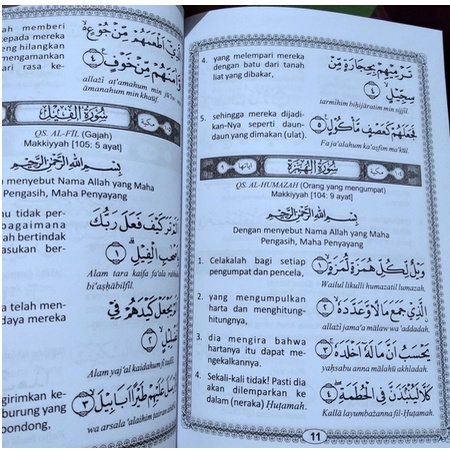 lah memberi
kepada mereka
eng hilangkan
mengamankan
ari rasa ke-
allażī aṭ'amahum min jū'iw
āmanahum min khaūf.
سُورَةُ الْفِيْلِ
مكية
QS. AL-FĪL (Gajah)
Makkiyyah [105: 5 ayat]
بِسْمِ اللّٰهِ الرَّحْمٰنِ الرَّحِيْمِ
menyebut Nama Allah yang Maha
Pengasih, Maha Penyayang
اَلَمْ تَرَ كَيْفَ فَعَلَ رَبُّكَ
بِاَصْحٰبِ الْفِيْلِ ۗ ١
u tidak per-
bagaimana
ah bertindak
asukan ber-
Alam tara kaifa fa'ala rabbuka
bi'aṣḥābilfīl.
اَلَمْ يَجْعَلْ كَيْدَهُمْ فِيْ
تَضْلِيْلٍ ٢
a telah men-
daya mereka
Alam yaj'al kaidahum fī
وَاَرْسَلَ عَلَيْهِمْ طَيْرًا اَبَابِيْلَ ٣
girimkan ke-
burung yang
ondong,
wa arsala 'alaihim ṭairan
4. yang melempari mereka
dengan batu dari tanah
liat yang dibakar,
تَرْمِيْهِمْ بِحِجَارَةٍ مِّنْ
سِجِّيْلٍ ٤
tarmīhim biḥijāratim min sijjīl.
5. sehingga mereka dijadi-
kan-Nya seperti daun-
daun yang dimakan (ulat).
فَجَعَلَهُمْ كَعَصْفٍ مَّأْكُوْلٍ ٥
Fa ja'alahum ka'aṣfim ma'kūl.
١٠٤ مكية سُورَةُ الْهُمَزَةِ اياتها ٩
QS. AL-HUMAZAH (Orang yang mengumpat)
Makkiyyah [104: 9 ayat]
بِسْمِ اللّٰهِ الرَّحْمٰنِ الرَّحِيْمِ
Dengan menyebut Nama Allah yang Maha
Pengasih, Maha Penyayang
1. Celakalah bagi setiap
pengumpat dan pencela,
وَيْلٌ لِّكُلِّ هُمَزَةٍ لُّمَزَةٍ ١
Wailul likulli humazatil lumazah.
2. yang mengumpulkan
harta dan menghitung-
hitungnya,
الَّذِيْ جَمَعَ مَالًا وَّعَدَّدَهٗ ٢
allażī jama'a mālaw wa 'addadah.
3. dia mengira bahwa
hartanya itu dapat me-
ngekalkannya.
يَحْسَبُ اَنَّ مَالَهٗٓ اَخْلَدَهٗ ٣
yaḥsabu anna mālahū akhladah.
4. Sekali-kali tidak! Pasti dia
akan dilemparkan ke
dalam (neraka) Ḥuṭamah.
كَلَّا لَيُنْۢبَذَنَّ فِى الْحُطَمَةِ ٤
Kallā layumbażanna fil-Ḥuṭamah.
11